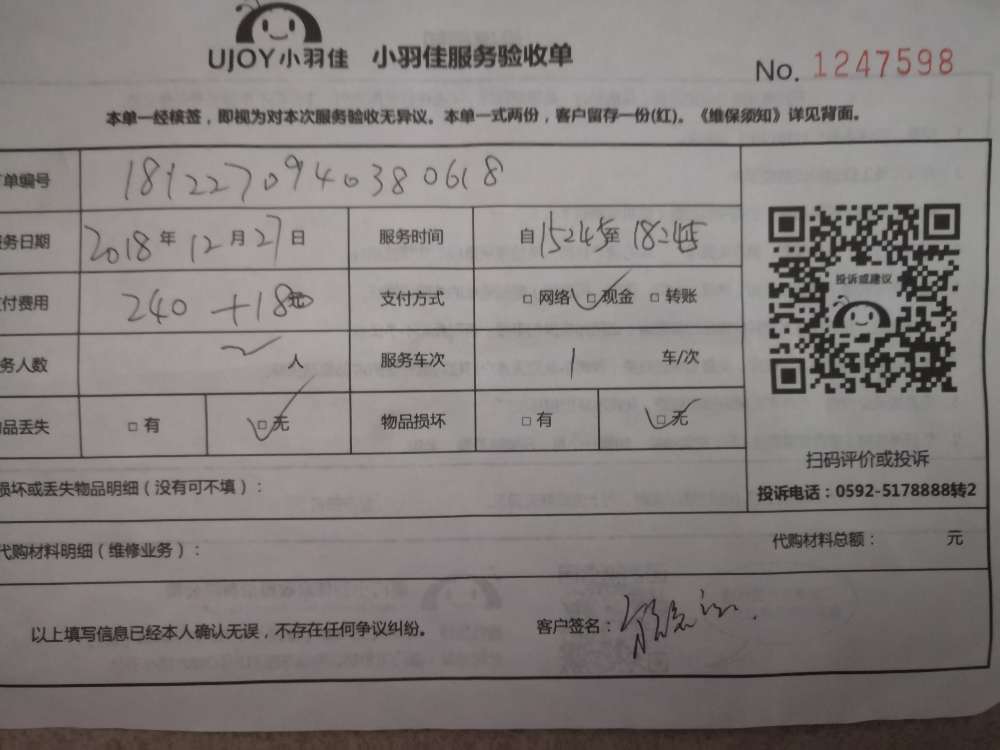 UJOY小羽佳 小羽佳服务验收单
No. 1247598
本单一经核签，即视为对本次服务验收无异议。本单一式两份，客户留存一份(红)。《维保须知》详见背面。
单编号 1812270940380618
务日期 2018年12月27日 服务时间 自15245至18245
付费用 240+180元 支付方式 □网络 □现金 □转账
务人数 人 服务车次 1 车/次
品丢失 □有 □无 物品损坏 □有 □无
投诉或建议
扫码评价或投诉
投诉电话：0592-5178888转2
损坏或丢失物品明细（没有可不填）：
代购材料明细（维修业务）： 代购材料总额： 元
以上填写信息已经本人确认无误，不存在任何争议纠纷。 客户签名：